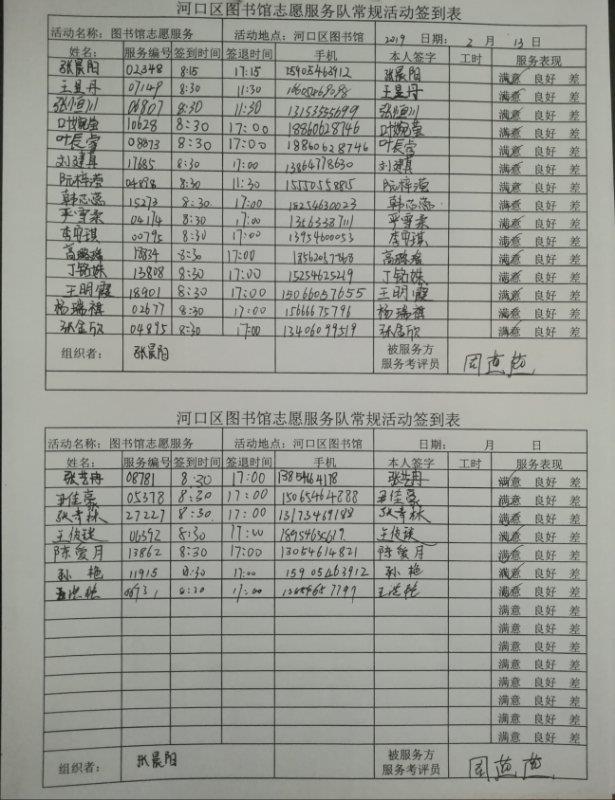 河口区图书馆志愿服务队常规活动签到表
活动名称：图书馆志愿服务 活动地点：河口区图书馆 2019 日期： 2 月 13 日
姓名： 服务编号 签到时间 签退时间 手机 本人签字 工时 服务表现
张晨阳 02348 8:15 17:15 15905463912 张晨阳 满意 良好 差
王昱丹 07149 8:30 11:30 王昱丹 满意 良好 差
张恒川 06807 8:30 11:30 13153555699 张恒川 满意 良好 差
叶婉莹 10628 8:30 17:00 18860628746 叶婉莹 满意 良好 差
叶长雪 08873 8:30 17:00 18860628746 叶长雪 满意 良好 差
刘建真 17685 8:30 17:00 13864778630 刘建真 满意 良好 差
阮梓滢 04898 8:30 11:30 15550558815 阮梓滢 满意 良好 差
韩芯蕊 15273 8:30 17:00 18254630023 韩芯蕊 满意 良好 差
严雪柔 04174 8:30 17:00 13563387111 严雪柔 满意 良好 差
00795 8:30 17:00 13954600053 满意 良好 差
高璐瑶 18834 8:30 17:00 高璐瑶 满意 良好 差
丁铭姝 13808 8:30 17:00 15254625219 丁铭姝 满意 良好 差
王明霞 18901 8:30 17:00 15066057655 王明霞 满意 良好 差
杨瑞祺 02677 8:30 17:00 15666675796 杨瑞祺 满意 良好 差
张金欣 04895 8:30 17:00 13406099519 张金欣 满意 良好 差
组织者： 张晨阳 被服务方
服务考评员
河口区图书馆志愿服务队常规活动签到表
活动名称：图书馆志愿服务 活动地点：河口区图书馆 日期： 月 日
姓名： 服务编号 签到时间 签退时间 手机 本人签字 工时 服务表现
08781 8:30 17:00 满意 良好 差
05378 8:30 17:00 15065464888 满意 良好 差
张孝林 27227 8:30 17:00 13173469188 张孝林 满意 良好 差
王俊铁 06392 8:30 17:00 18954635619 王俊铁 满意 良好 差
陈爱月 13862 8:30 17:00 13054614821 陈爱月 满意 良好 差
孙艳 11915 8:30 17:00 15905463912 孙艳 满意 良好 差
8:30 17:00 满意 良好 差
满意 良好 差
满意 良好 差
满意 良好 差
满意 良好 差
满意 良好 差
满意 良好 差
满意 良好 差
满意 良好 差
组织者： 张晨阳 被服务方
服务考评员